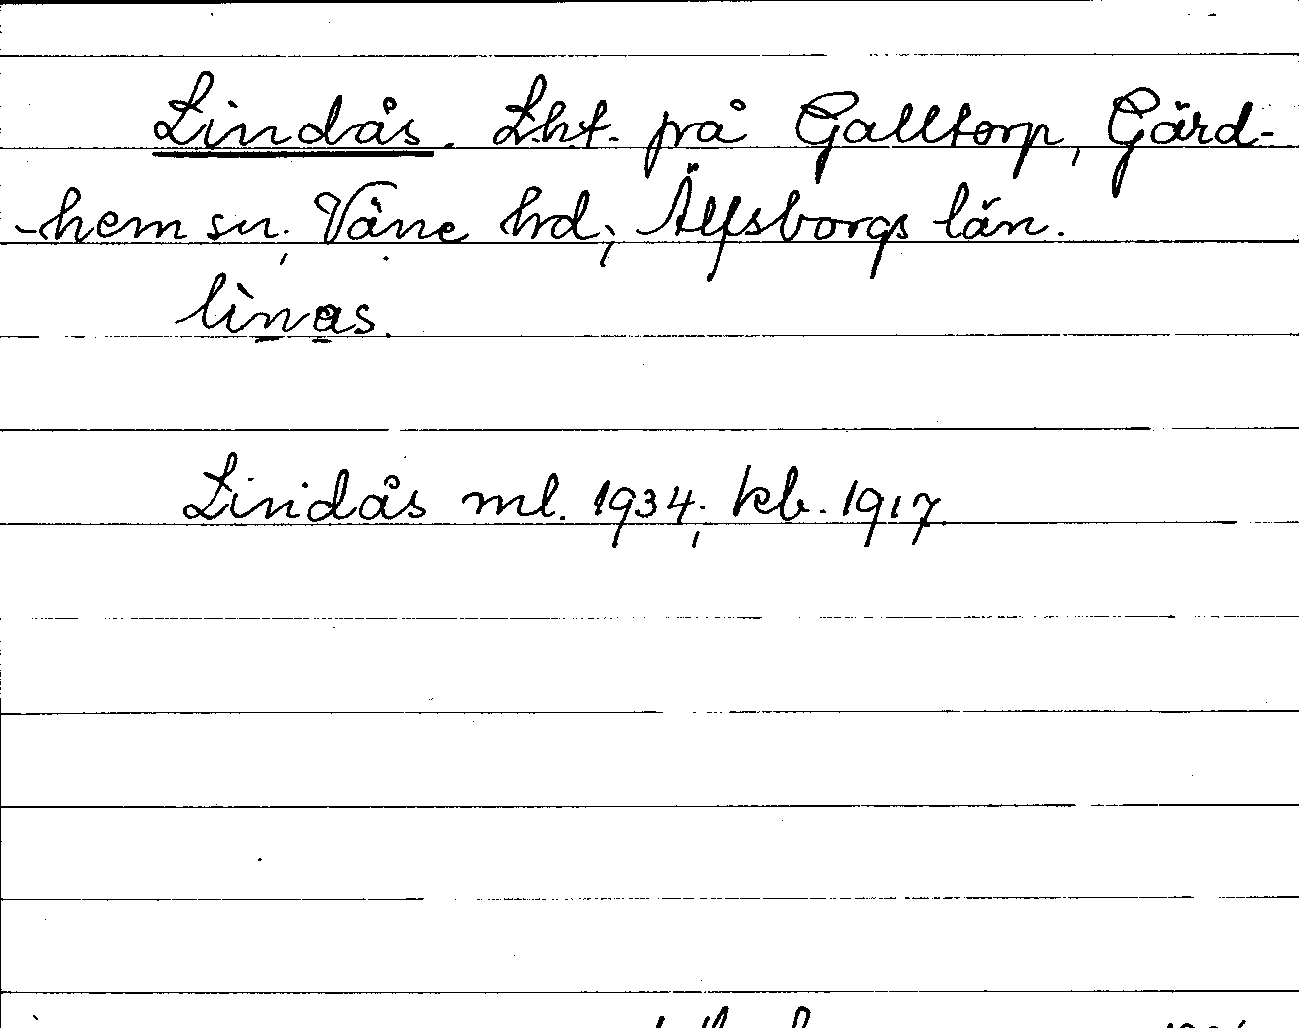 Lindås. Lht. på Galltorp, Gärd-
-hem sn, Väne hd, Älfsborgs län.
lìnas.
Lindås ml. 1934; kb. 1917.